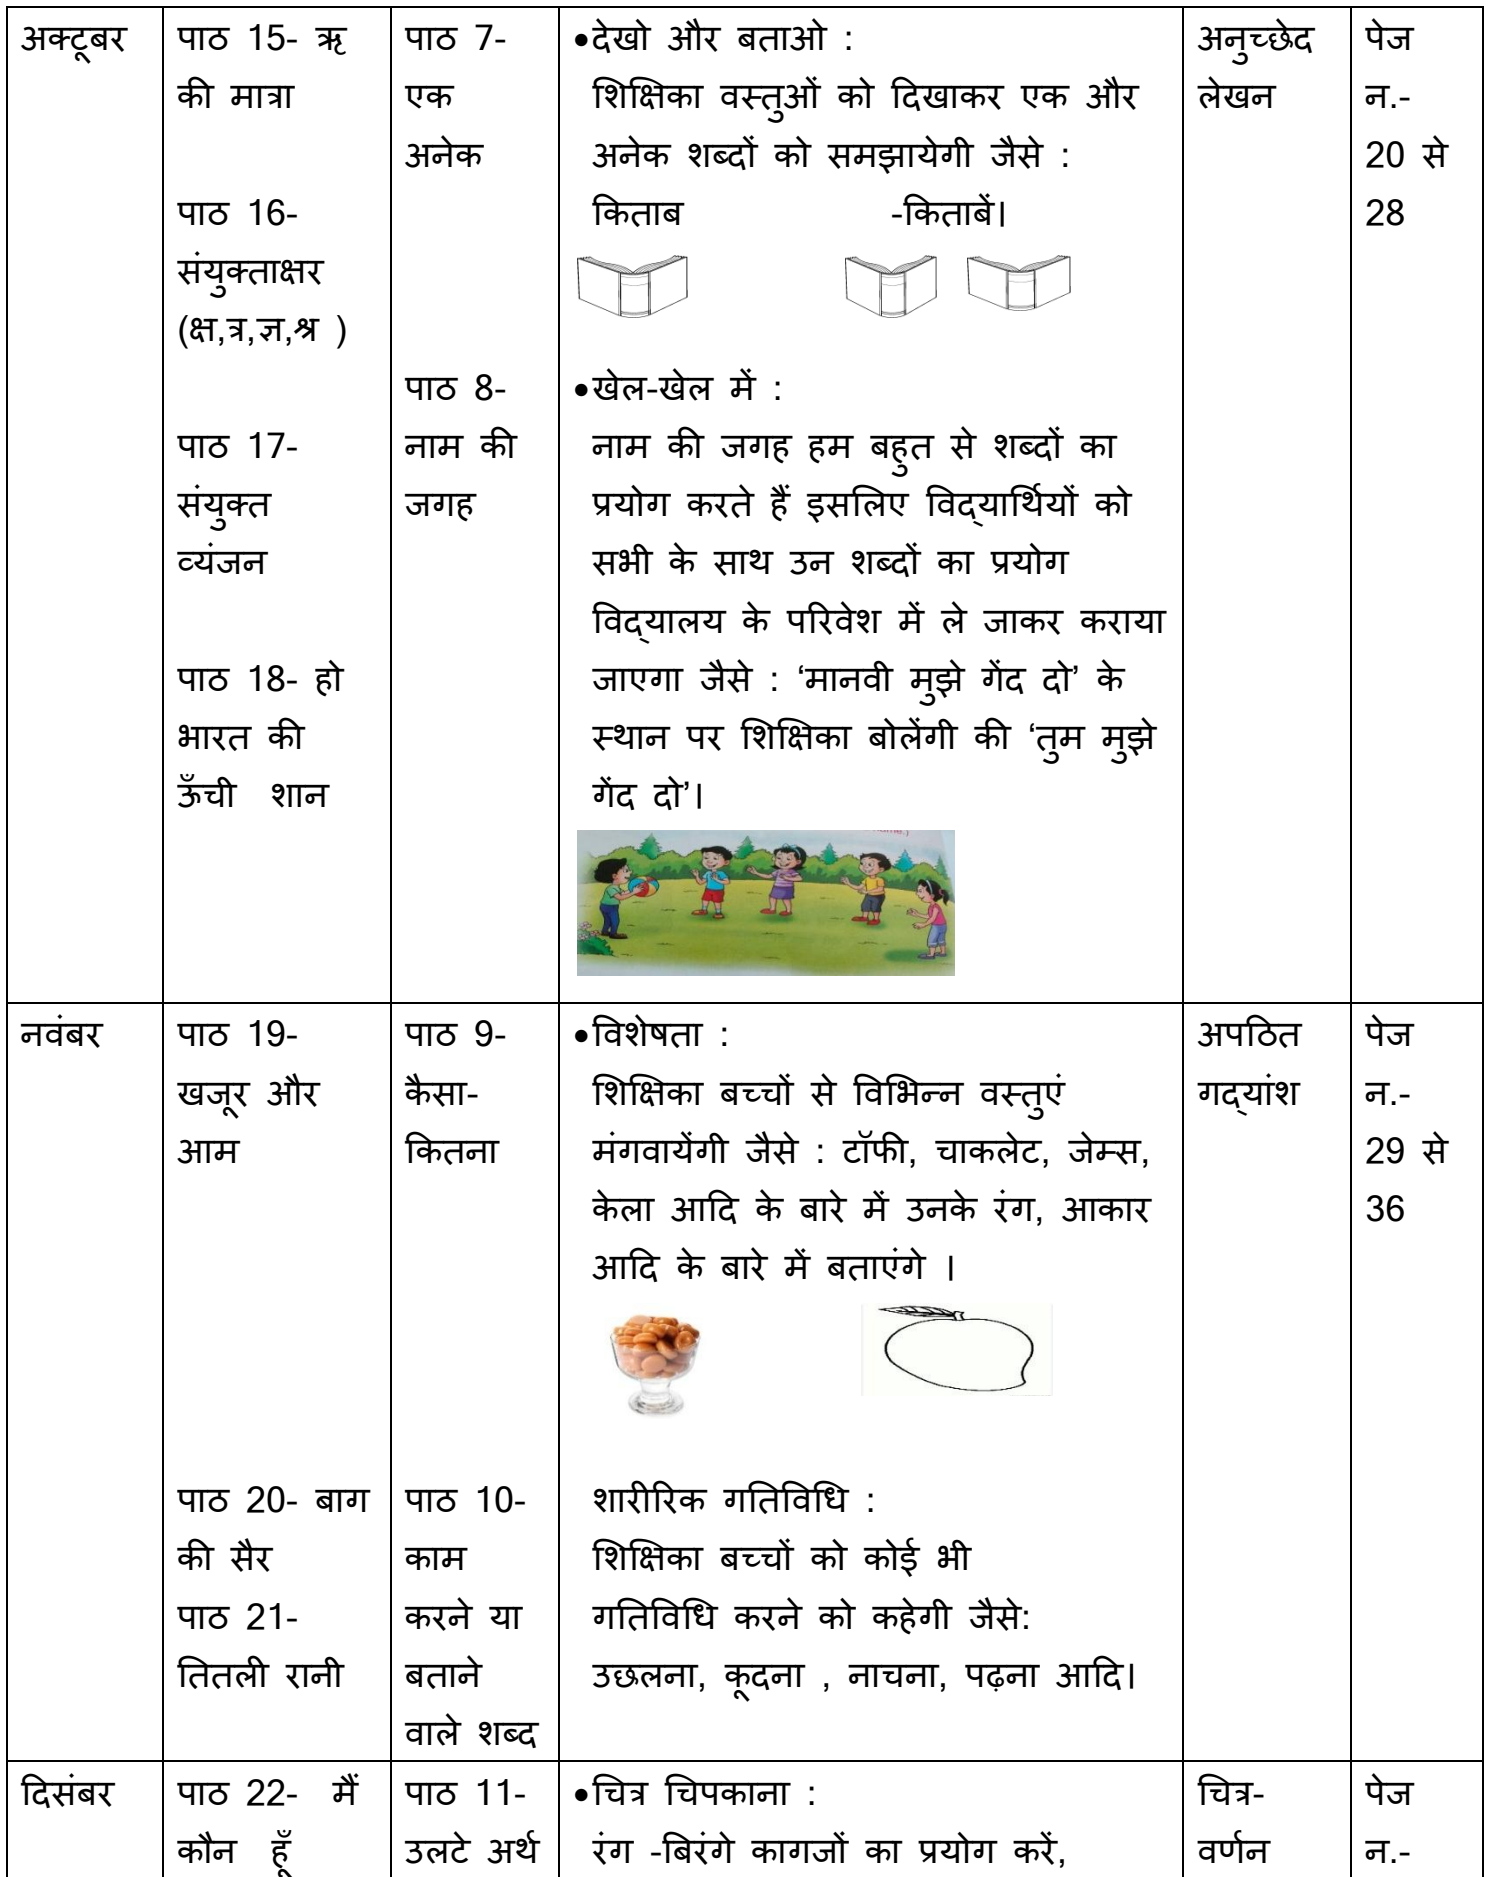 अक्टूबर
पाठ 15- ऋ
की मात्रा
पाठ 16-
संयुक्ताक्षर
(क्ष,त्र,ज्ञ,श्र )
पाठ 17-
संयुक्त
व्यंजन
पाठ 18- हो
भारत की
ऊँची शान
पाठ 7-
एक
अनेक
पाठ 8-
नाम की
जगह
•देखो और बताओ :
शिक्षिका वस्तुओं को दिखाकर एक और
अनेक शब्दों को समझायेगी जैसे :
किताब -किताबें।
•खेल-खेल में :
नाम की जगह हम बहुत से शब्दों का
प्रयोग करते हैं इसलिए विद्यार्थियों को
सभी के साथ उन शब्दों का प्रयोग
विद्यालय के परिवेश में ले जाकर कराया
जाएगा जैसे : ‘मानवी मुझे गेंद दो’ के
स्थान पर शिक्षिका बोलेंगी की ‘तुम मुझे
गेंद दो’।
अनुच्छेद
लेखन
पेज
न.-
20 से
28
नवंबर
पाठ 19-
खजूर और
आम
पाठ 20- बाग
की सैर
पाठ 21-
तितली रानी
पाठ 9-
कैसा-
कितना
पाठ 10-
काम
करने या
बताने
वाले शब्द
•विशेषता :
शिक्षिका बच्चों से विभिन्न वस्तुएं
मंगवायेंगी जैसे : टॉफी, चाकलेट, जेम्स,
केला आदि के बारे में उनके रंग, आकार
आदि के बारे में बताएंगे ।
शारीरिक गतिविधि :
शिक्षिका बच्चों को कोई भी
गतिविधि करने को कहेगी जैसे:
उछलना, कूदना , नाचना, पढ़ना आदि।
अपठित
गद्यांश
पेज
न.-
29 से
36
दिसंबर
पाठ 22- मैं
कौन हूँ
पाठ 11-
उलटे अर्थ
•चित्र चिपकाना :
रंग -बिरंगे कागजों का प्रयोग करें,
चित्र-
वर्णन
पेज
न.-